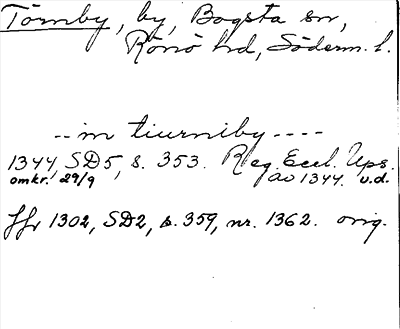 Törnby, by, Bogsta sn,
Rönö hd, Söderm. l.
-- in tiurniby ----
1344, SD5, s. 353. Reg. Eccl. Ups.
omkr. 29/9 av 1344. v.d.
jfr 1302, SD2, s. 359, nr. 1362. orig.